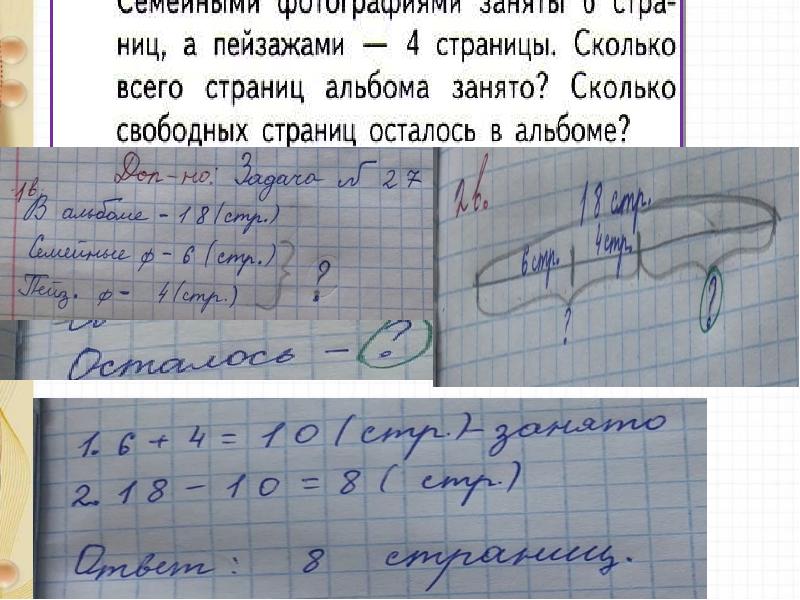 Семейными фотографиями заняты 6 стра-
ниц, а пейзажами — 4 страницы. Сколько
всего страниц альбома занято? Сколько
свободных страниц осталось в альбоме?
Доп-но: Задача № 27
1в.
В альбоме - 18 (стр.)
Семейные ф - 6 (стр.)
Пейз. ф - 4 (стр.)
?
Осталось - ?
2в.
18 стр.
6 стр. 4 стр.
? ?
1. 6 + 4 = 10 (стр.) - занято
2. 18 - 10 = 8 ( стр.)
Ответ: 8 страниц.